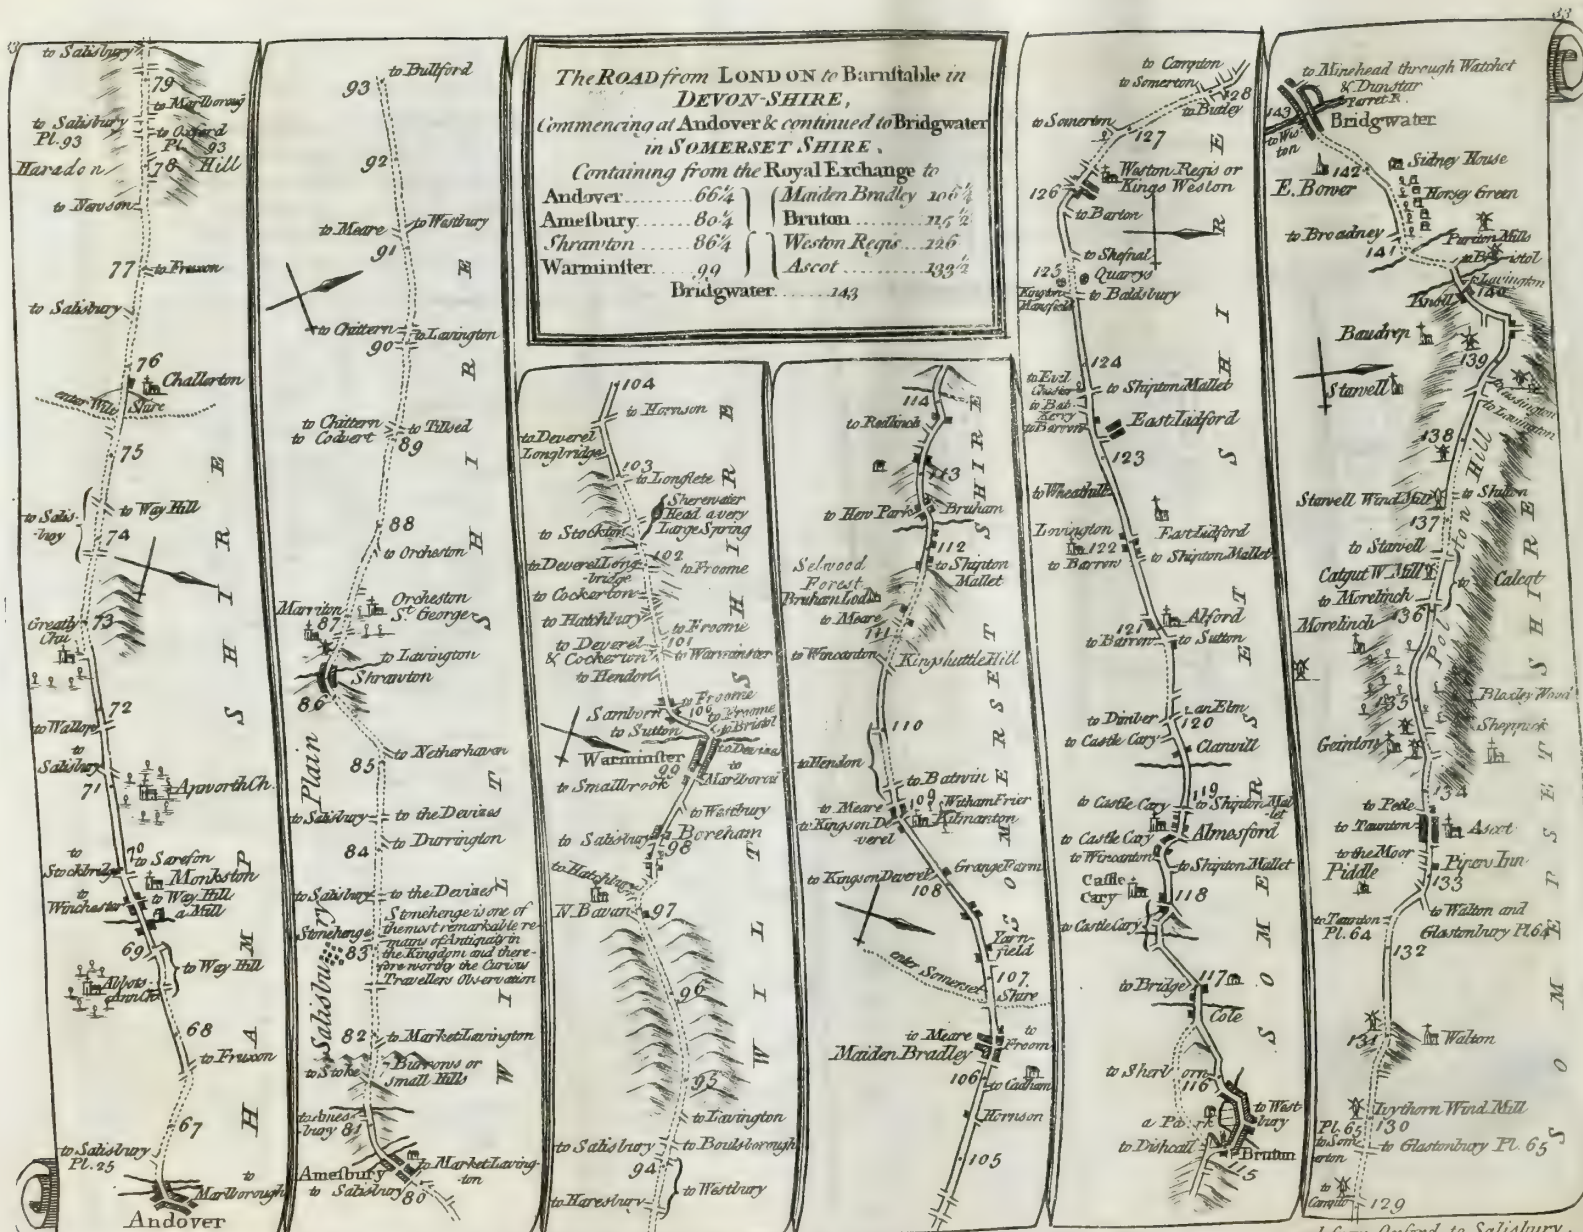 33
The ROAD from LONDON to Barnstable in
DEVON-SHIRE,
Commencing at Andover & continued to Bridgwater
in SOMERSET SHIRE.
Containing from the Royal Exchange to
Andover 66¼
Amesbury 80¼
Shrawton 86¼
Warminster 99
Maiden Bradley 106¼
Bruton 115½
Weston Regis 126
Ascot 133½
Bridgwater 143
to Salisbury
79
to Salisbury
Pl. 93
to Oxford
Pl. 93
Haradon
78 Hill
to Newson
77
to Fruxon
to Salisbury
76
Challerton
enter Wilt Shire
75
to Salis-
bury
to Way Hill
74
73
Greatly
Chu
72
to Wallop
to
Salisbury
71
Apworth Ch.
70
to Sarefon
to
Stockbridge
Monkston
to Way Hill
to
Winchester
a Mill
69
to Way Hill
Abbots
Ann Ch
68
to Fruxon
67
to Salisbury
Pl. 25
to
Marlborough
Andover
HAMPSHIRE
93
to Bullford
92
to Meare
to Westbury
91
to Chittern
to Lavington
90
to Chittern
to Codvert
to Tilsed
89
88
to Orcheston
Marriton
Orcheston
St. George
87
to Lavington
Shrawton
86
to Netherhaven
85
to Salisbury
to the Devizes
to Durrington
84
to Salisbury
to the Devizes
Stonehenge
83
Stonehenge is one of
the most remarkable re-
mains of Antiquity in
the Kingdom and there-
fore worthy the Curious
Travellers Observation
Salisbury Plain
82
to Market Lavington
to Stoke
Burrows or
small Hills
to Ames-
bury
81
Amesbury
to Market Laving-
ton
to Salisbury
80
WILTSHIRE
104
to Hornson
to Deverel
Longbridge
103
to Longlete
Sherewater
Head a very
Large Spring
to Stockton
102
to Deverel Long-
bridge
to Froome
to Cockerton
to Hatchbury
to Froome
101
to Deverel
& Cockerton
to Warminster
to Hendon
to Froome
Samborn
100
to Froome
to Sutton
to Bristol
Warminster
to Devizes
99
to
Marlborow
to Smallbrook
to Westbury
to Salisbury
Boreham
98
to Hatchbury
N. Bavan
97
96
95
to Lavington
to Salisbury
to Boulsborough
94
to Haresbury
to Westbury
WILTSHIRE
114
to Redlinch
113
to Hew Park
Bruham
112
to Shipton
Mallet
Selwood
Forest
Bruham Lod
to Meare
111
to Wincanton
Kingshuttle Hill
110
to Hendon
to Batwin
to Meare
109
Witham Frier
to Kingson De
verel
Kilmanton
Grange Farm
to Kingson Deverel
108
Yarn-
field
107
enter Somerset Shire
to Meare
to
Froom
Maiden Bradley
106
to Cadham
Hornson
105
SOMERSET SHIRE
to Compton
to Somerton
128
to Butley
to Somerton
127
Weston Regis or
Kings Weston
126
to Barton
to Shefnal
125
Quarrys
Kington
Mansfield
to Baldsbury
124
to Evil
Chester
to Shipton Mallet
to Bab
Kerry
to Barrow
East Lidford
123
to Wheathill
Lovington
East Lidford
122
to Barrow
to Shipton Mallet
Alford
121
to Barrow
to Sutton
to Dimber
an Elm
120
to Castle Cary
Clanvill
119
to Castle Cary
to Shipton Mal-
let
to Castle Cary
Almesford
to Wincanton
to Shipton Mallet
Castle
Cary
118
to Castle Cary
117
to Bridge
Cole
to Sherborn
116
a Park
to West-
bury
to Dishcall
Bruton
115
SOMERSETSHIRE
33
to Minehead through Watchet
& Dunstar
Parret R.
143
Bridgwater
to Wis-
ton
142
Sidney House
E. Bower
Horsey Green
to Broadney
Purton Mills
141
to Bristol
to Lavington
Knoll
140
Baudrep
139
Stawell
to Cossington
to Lavington
138
Stawell Wind Mill
to Shilton
137
to Stawell
Catgut W. Mill
to Calcot
to Morelinch
136
Morelinch
Polston Hill
135
Blaxley Wood
Sheppick
Geinton
134
to Pedle
to Taunton
Ascot
to the Moor
Piddle
Pipers Inn
133
to Taunton
Pl. 64
to Walton and
Glastonbury Pl. 64
132
131
Walton
Ivythorn Wind Mill
Pl. 65
130
to Som-
erton
to Glastonbury Pl. 65
to
Compton
129
SOMERSETSHIRE
from Oxford to Salisbury.